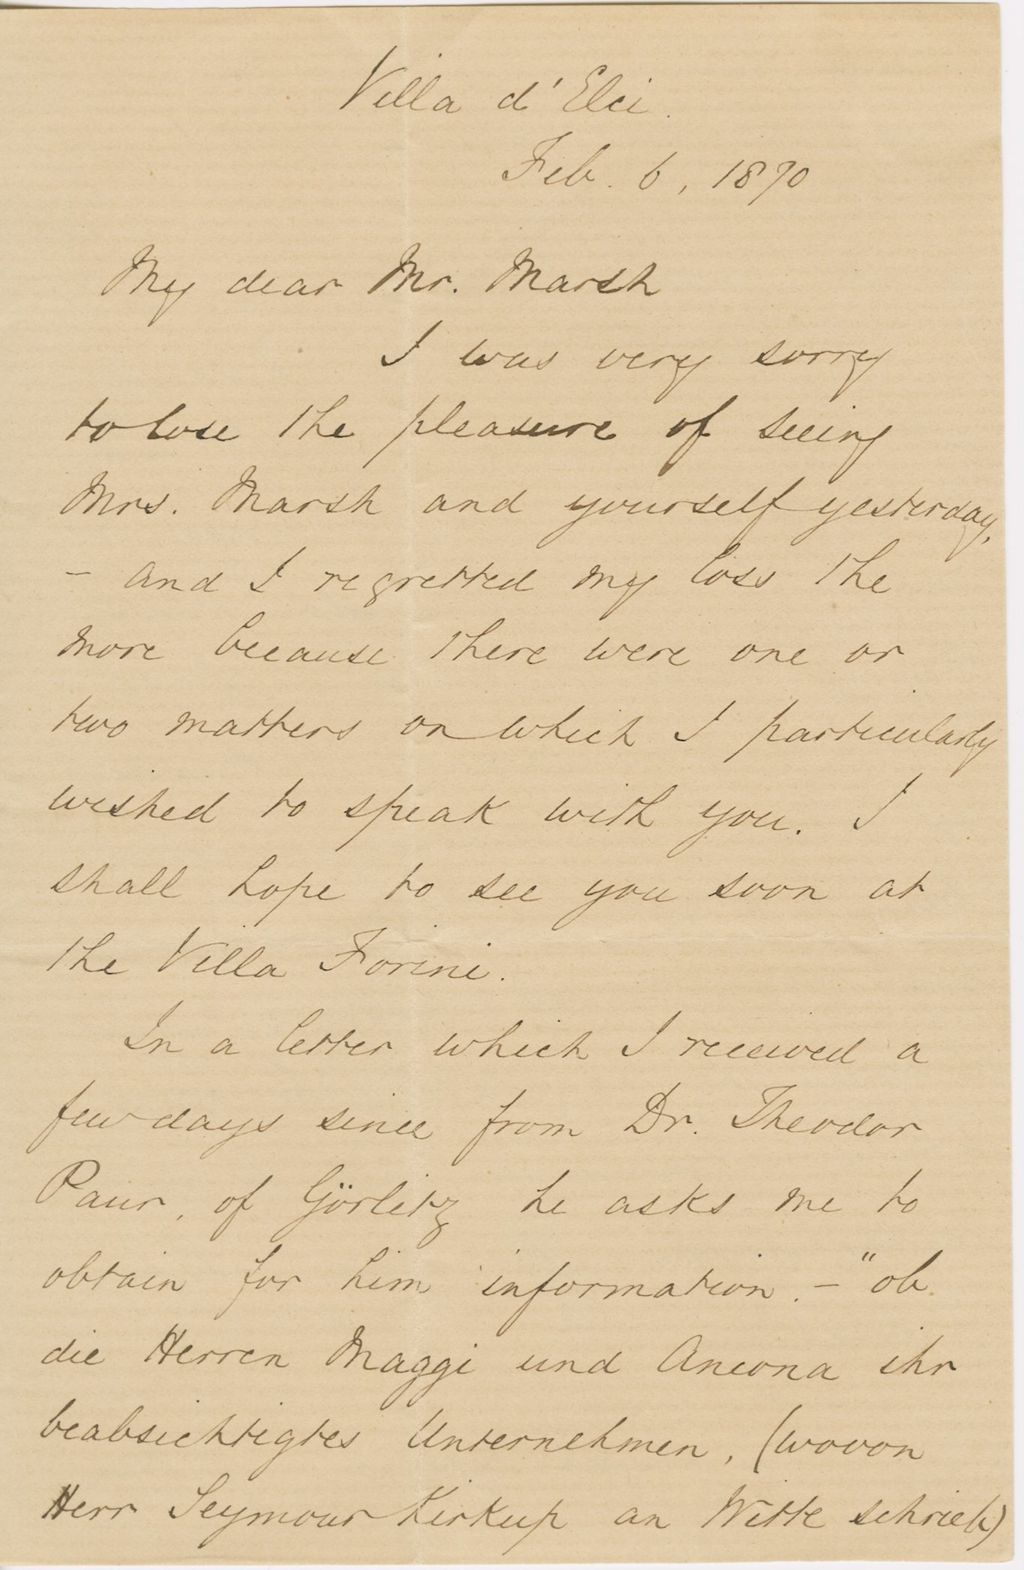 Villa d'Elci.
Feb. 6, 1870
My dear Mr. Marsh
I was very sorry
to lose the pleasure of seeing
Mrs. Marsh and yourself yesterday,
- and I regretted my loss the
more because there were one or
two matters on which I particularly
wished to speak with you. I
shall hope to see you soon at
the Villa Forini.
In a letter which I received a
few days since from Dr. Theodor
Paur, of Görlitz he asks me to
obtain for him information. - "ob
die Herren Maggi und Ancona ihr
beabsichtigtes Unternehmen, (wovon
Herr Seymour Kirkup an Witte schrieb)